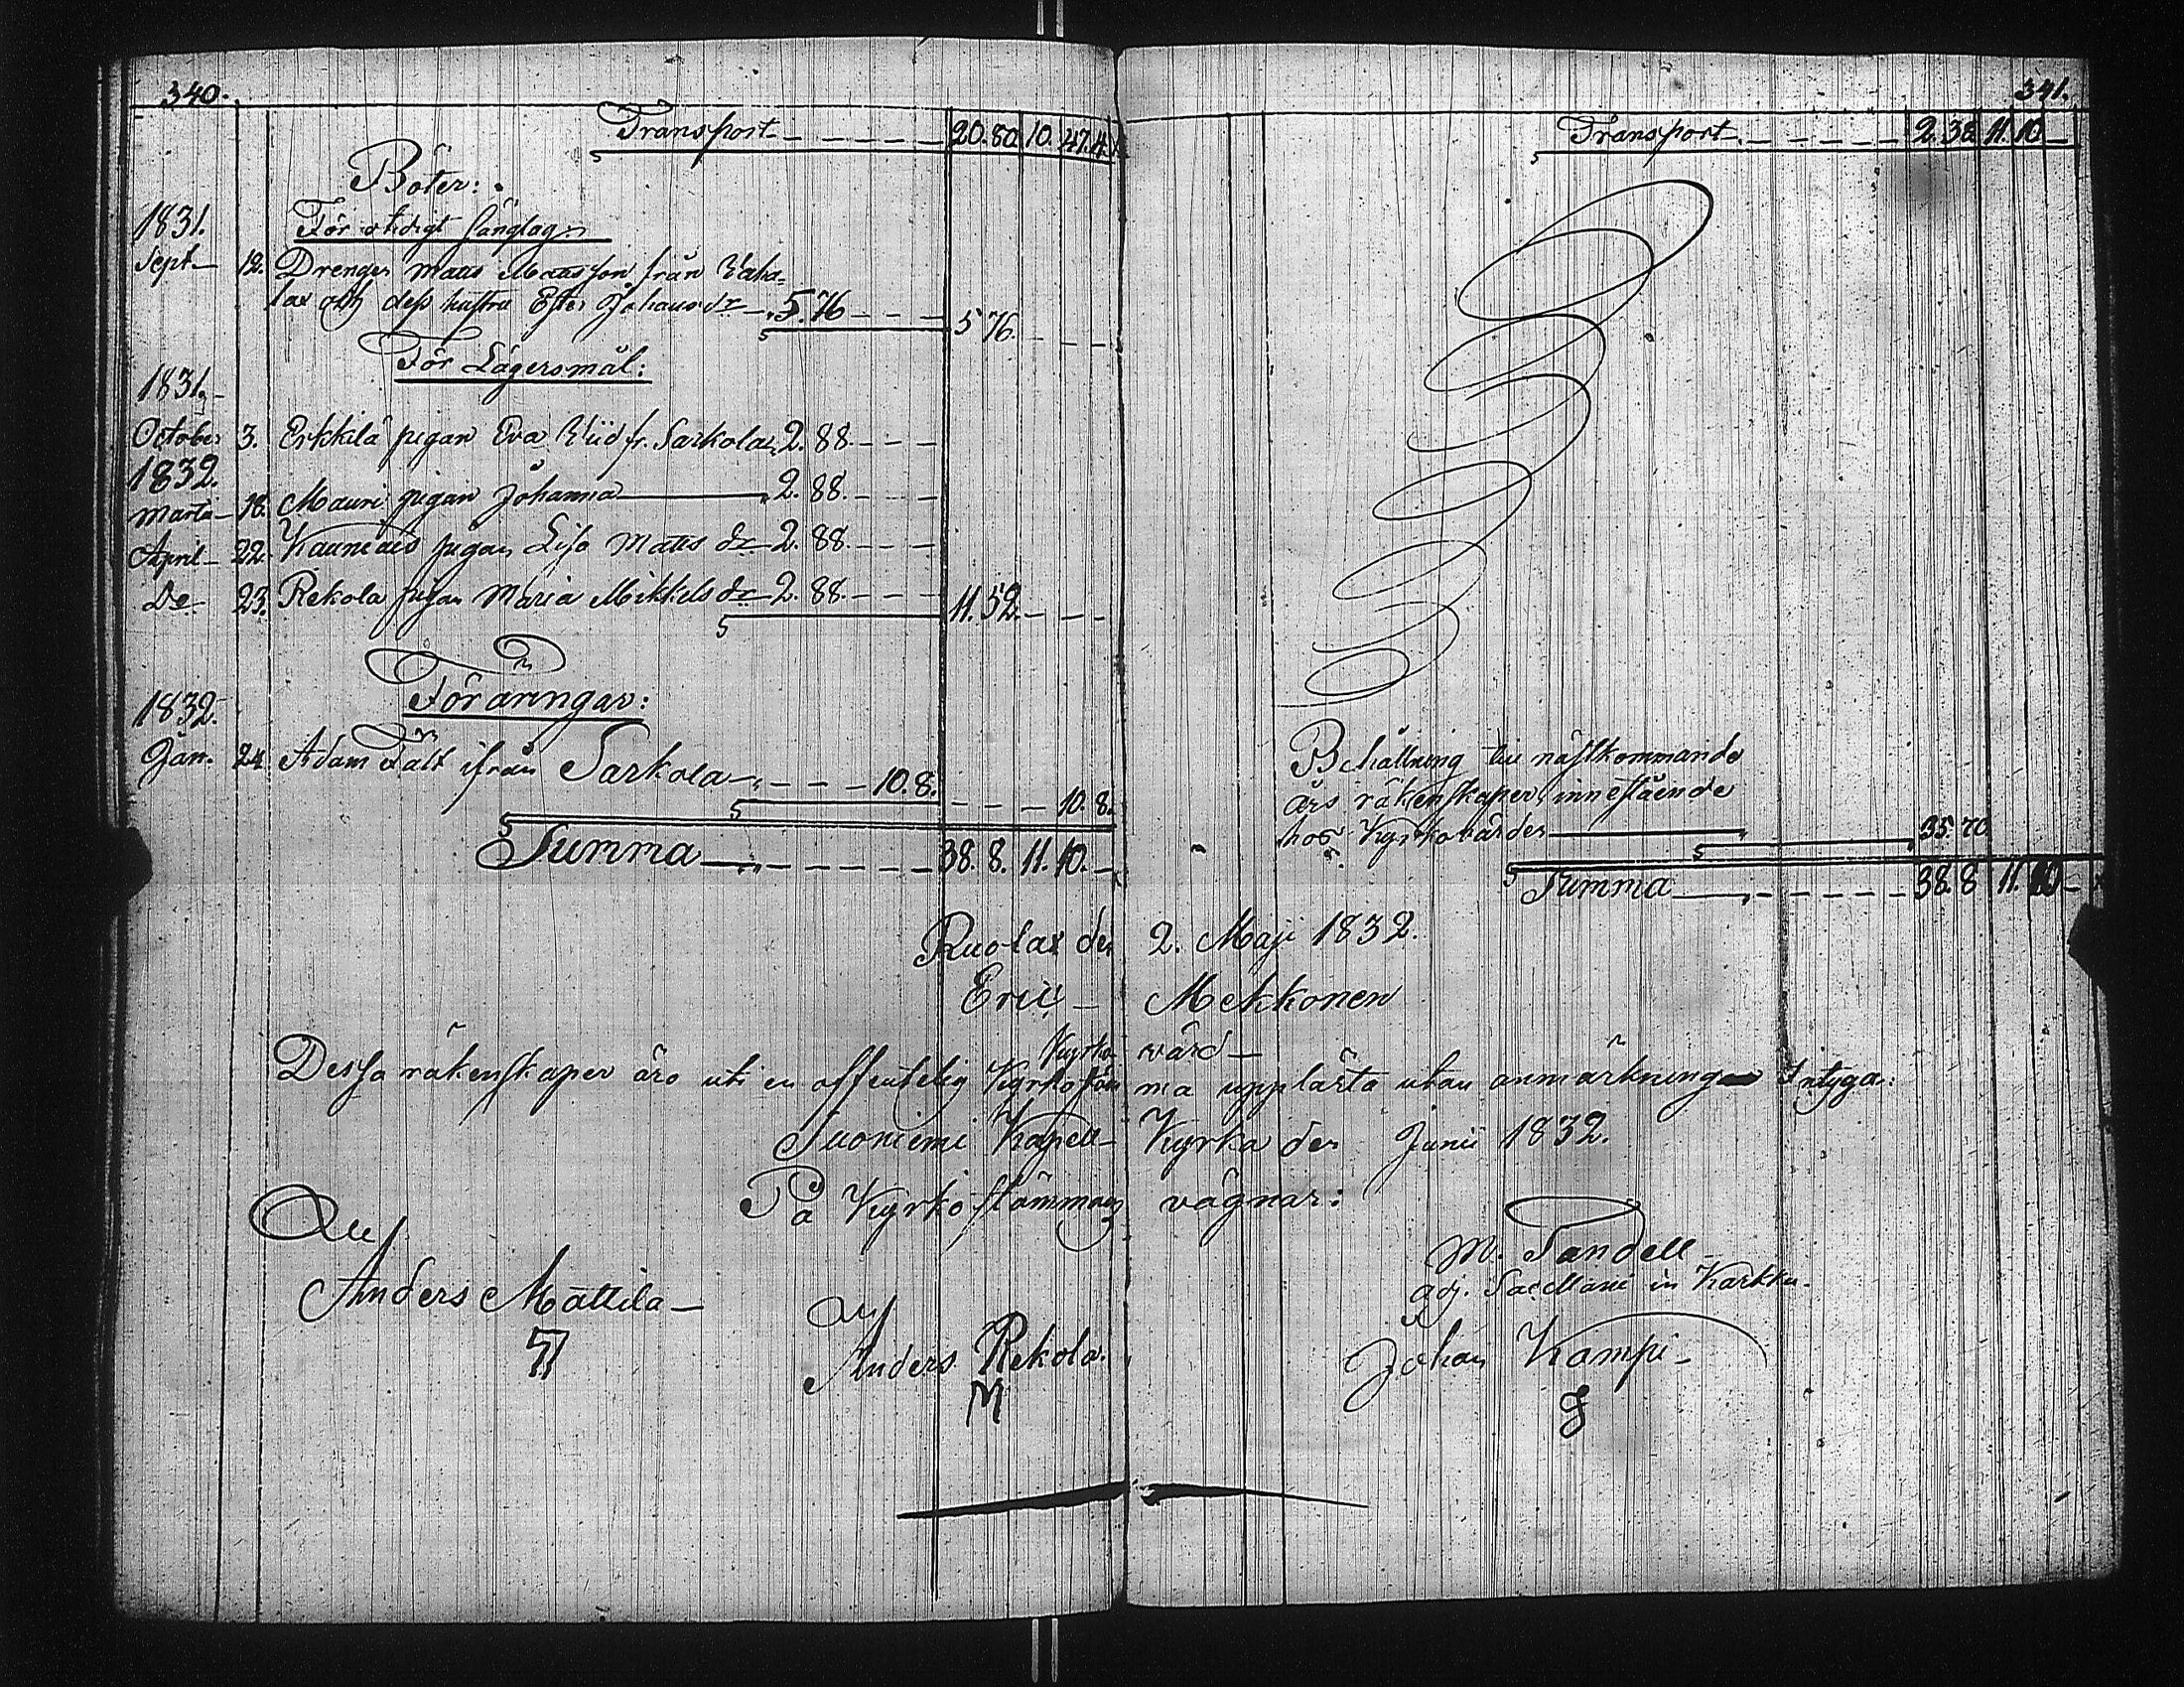 340.
Transport 20. 80. 10. 47. 4.
Böter:
1831.
För otidigt sänglag
Sept. 12. Drengen Matts Mattsson från Vaha-
lax och dess hustru Ester Johansdr 5. 76 5 76.
För Lägersmål:
1831.
October 3. Erkkilä pigan Eva fr. Sarkola 2. 88.
1832.
Martii 18. Mauri pigan Johanna 2. 88.
April 22. Kauniais pigan Lisa Matts dr 2. 88.
Do 23. Rekola pigan Maria Mikkels dr 2. 88. 11. 52.
Föräringar:
1832.
Jan. 24. Adam Fält ifrån Sarkola 10. 8. 10. 8.
Summa 38. 8. 11. 10.
341.
Transport 2. 38. 11. 10
Behållning till nästkommande
års räkenskaper innestående
hos Kyrkovärden 35. 70
Summa 38. 8 11. 10
Ruolax den 2. Maji 1832.
Eric Mekkonen
Kyrko värd
Dessa räkenskaper äro uti en offentelig Kyrkostämma upplästa utan anmärkning Intyga:
Suoniemi Kapell Kyrka den Junii 1832.
På Kyrkostämmans vägnar:
M. Sandell
adj. Sacellani in Karkku.
Anders Mattila
Anders Rekola.
M
Johan Kampi